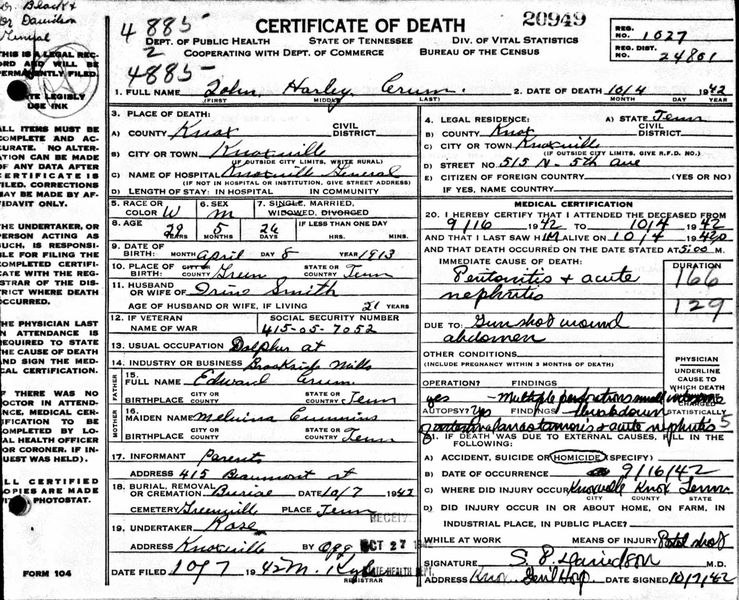 Dr. Black &
Dr Davidson
4885
2
4885-
CERTIFICATE OF DEATH
20949
DEPT. OF PUBLIC HEALTH STATE OF TENNESSEE DIV. OF VITAL STATISTICS
COOPERATING WITH DEPT. OF COMMERCE BUREAU OF THE CENSUS
REG. NO. 1027
REG. DIST. NO. 24801
THIS IS A LEGAL REC-
ORD AND WILL BE
PERMANENTLY FILED.
LEGIBLY
USE INK
ALL ITEMS MUST BE
COMPLETE AND AC-
CURATE. NO ALTER-
ATION CAN BE MADE
OF ANY DATA AFTER
CERTIFICATE IS
FILED. CORRECTIONS
MAY BE MADE BY AF-
FIDAVIT ONLY.
THE UNDERTAKER, OR
PERSON ACTING AS
SUCH, IS RESPONSI-
BLE FOR FILING THE
COMPLETED CERTIFI-
CATE WITH THE REG-
ISTRAR OF THE DIS-
TRICT WHERE DEATH
OCCURRED.
THE PHYSICIAN LAST
IN ATTENDANCE IS
REQUIRED TO STATE
THE CAUSE OF DEATH
AND SIGN THE MEDI-
CAL CERTIFICATION.
IF THERE WAS NO
DOCTOR IN ATTEND-
ANCE, MEDICAL CER-
TIFICATION TO BE
COMPLETED BY LO-
CAL HEALTH OFFICER
OR CORONER. IF IN-
QUEST WAS HELD).
ALL CERTIFIED
COPIES ARE MADE
BY PHOTOSTAT.
FORM 104
1. FULL NAME John Harley Crum.
(FIRST) (MIDDLE) (LAST)
2. DATE OF DEATH 10/4 1942
MONTH DAY YEAR
3. PLACE OF DEATH:
A) COUNTY Knox CIVIL DISTRICT
B) CITY OR TOWN Knoxville
(IF OUTSIDE CITY LIMITS, WRITE RURAL)
C) NAME OF HOSPITAL Knoxville General
(IF NOT IN HOSPITAL OR INSTITUTION, GIVE STREET ADDRESS)
D) LENGTH OF STAY: IN HOSPITAL IN COMMUNITY
4. LEGAL RESIDENCE: A) STATE Tenn
B) COUNTY Knox CIVIL DISTRICT
C) CITY OR TOWN Knoxville
(IF OUTSIDE CITY LIMITS, GIVE R.F.D. NO.)
D) STREET NO. 515 N. 5th Ave
E) CITIZEN OF FOREIGN COUNTRY (YES OR NO)
IF YES, NAME COUNTRY
5. RACE OR COLOR W
6. SEX M
7. SINGLE, MARRIED, WIDOWED, DIVORCED
8. AGE 29 YEARS 5 MONTHS 26 DAYS
IF LESS THAN ONE DAY HRS. MINS.
9. DATE OF BIRTH: MONTH April DAY 8 YEAR 1913
10. PLACE OF BIRTH CITY OR COUNTY Green STATE OR COUNTRY Tenn
11. HUSBAND OR WIFE OF Irine Smith
AGE OF HUSBAND OR WIFE, IF LIVING 21 YEARS
12. IF VETERAN NAME OF WAR SOCIAL SECURITY NUMBER
415-05-7052
13. USUAL OCCUPATION Dolpher at
14. INDUSTRY OR BUSINESS Brookside Mills
FATHER 15. FULL NAME Edward Crum
BIRTHPLACE CITY OR COUNTY STATE OR COUNTRY Tenn
MOTHER 16. MAIDEN NAME Melvina Cummins
BIRTHPLACE CITY OR COUNTY STATE OR COUNTRY Tenn
17. INFORMANT Parents
ADDRESS 415 Beaumont st
18. BURIAL, REMOVAL OR CREMATION Burial DATE 10/7 1942
CEMETERY Greenville PLACE Tenn
19. UNDERTAKER Rose
ADDRESS Knoxville By Ogg
RECEIV
OCT 27
DATE FILED 10/7 1942 M. Kyle
REGISTRAR
STATE HEALTH DEPT.
MEDICAL CERTIFICATION
20. I HEREBY CERTIFY THAT I ATTENDED THE DECEASED FROM
9/16 1942 TO 10/4 1942
AND THAT I LAST SAW HIM ALIVE ON 10/4 1942
AND THAT DEATH OCCURRED ON THE DATE STATED AT 5:00 M.
IMMEDIATE CAUSE OF DEATH: DURATION
Peritonitis & acute 166
nephritis 129
DUE TO: Gunshot wound
abdomen
OTHER CONDITIONS
(INCLUDE PREGNANCY WITHIN 3 MONTHS OF DEATH)
PHYSICIAN
UNDERLINE
CAUSE TO
WHICH DEATH
SHOULD BE
CHARGED
STATISTICALLY
OPERATION? FINDINGS
yes - multiple perforations small
AUTOPSY? Yes FINDINGS - breakdown
& acute nephritis 5
21. IF DEATH WAS DUE TO EXTERNAL CAUSES, FILL IN THE FOLLOWING:
A) ACCIDENT, SUICIDE OR HOMICIDE (SPECIFY)
B) DATE OF OCCURRENCE 9/16/42
C) WHERE DID INJURY OCCUR Knoxville Knox Tenn
CITY COUNTY STATE
D) DID INJURY OCCUR IN OR ABOUT HOME, ON FARM, IN
INDUSTRIAL PLACE, IN PUBLIC PLACE?
WHILE AT WORK MEANS OF INJURY Pistol shot
SIGNATURE S. P. Davidson M.D.
ADDRESS Knox. Gen'l Hosp DATE SIGNED 10/7/42